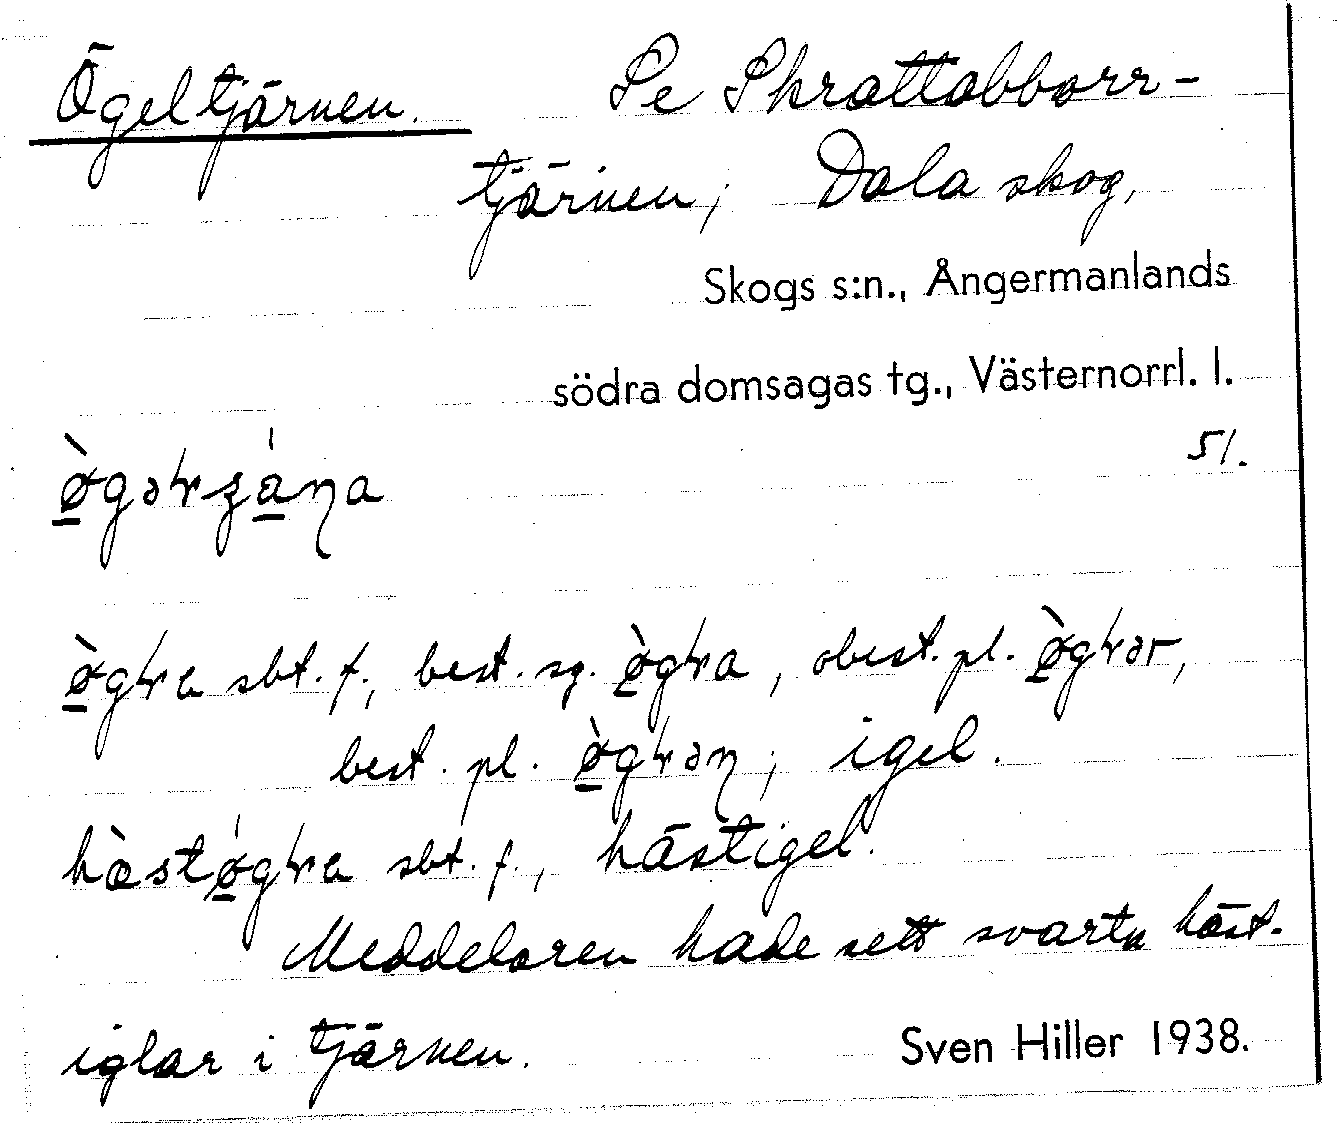 Ögeltjärnen. Se Skrattabborr-
tjärnen, Dala skog,
Skogs s:n., Ångermanlands
södra domsagas tg., Västernorrl. l.
51.
sbt. f., best. sg. , obest. pl. ,
best. pl. ; igel.
sbt. f., hästigel.
Meddelaren hade sett svarta häst-
iglar i tjärnen. Sven Hiller 1938.